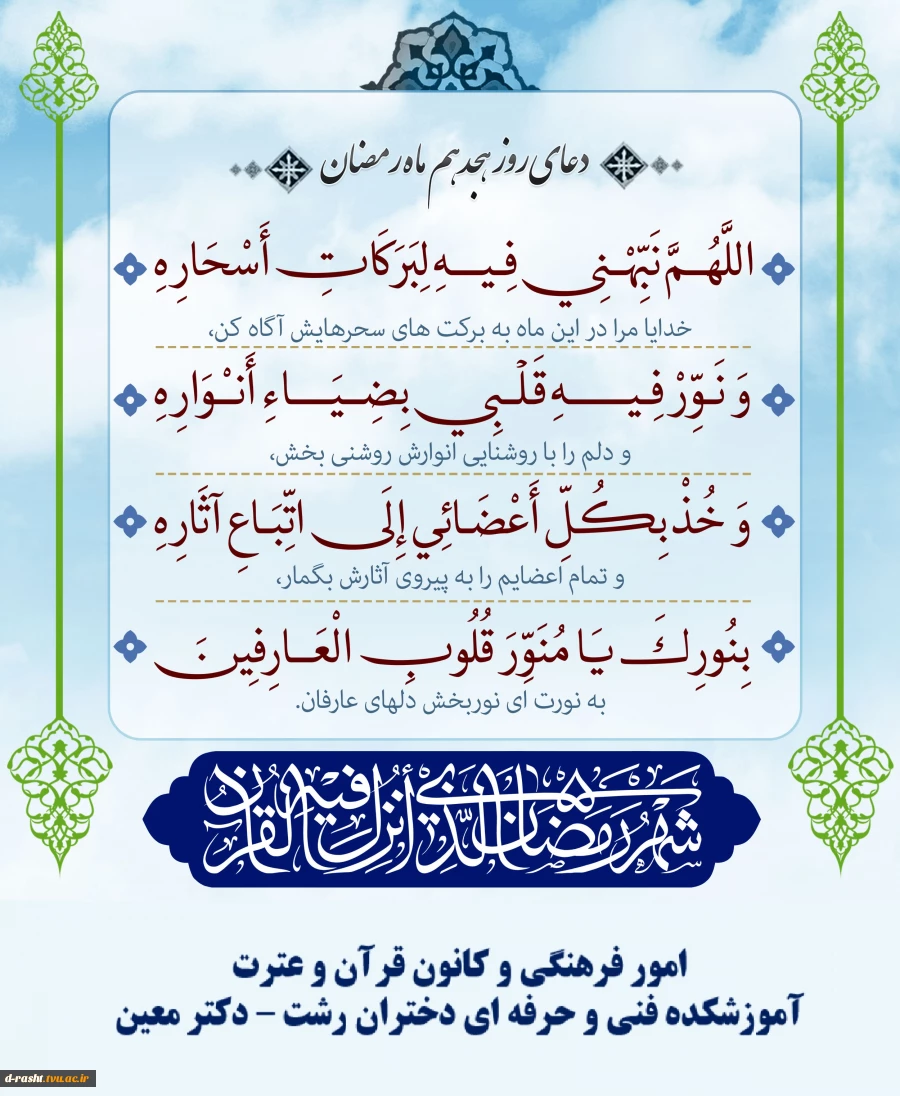 دعای روز هجدهم ماه رمضان
اللَّهُمَّ نَبِّهْنِي فِيهِ لِبَرَكَاتِ أَسْحَارِهِ
خدایا مرا در این ماه به برکت های سحرهایش آگاه کن،
وَ نَوِّرْ فِيهِ قَلْبِي بِضِيَاءِ أَنْوَارِهِ
و دلم را با روشنایی انوارش روشنی بخش،
وَ خُذْ بِكُلِّ أَعْضَائِي إِلَى اتِّبَاعِ آثَارِهِ
و تمام اعضایم را به پیروی آثارش بگمار،
بِنُورِكَ يَا مُنَوِّرَ قُلُوبِ الْعَارِفِينَ
به نورت ای نوربخش دلهای عارفان.
شهر رمضان الذي أنزل فيه القرآن
امور فرهنگی و کانون قرآن و عترت
آموزشکده فنی و حرفه ای دختران رشت - دکتر معین
d-rasht.tvu.ac.ir